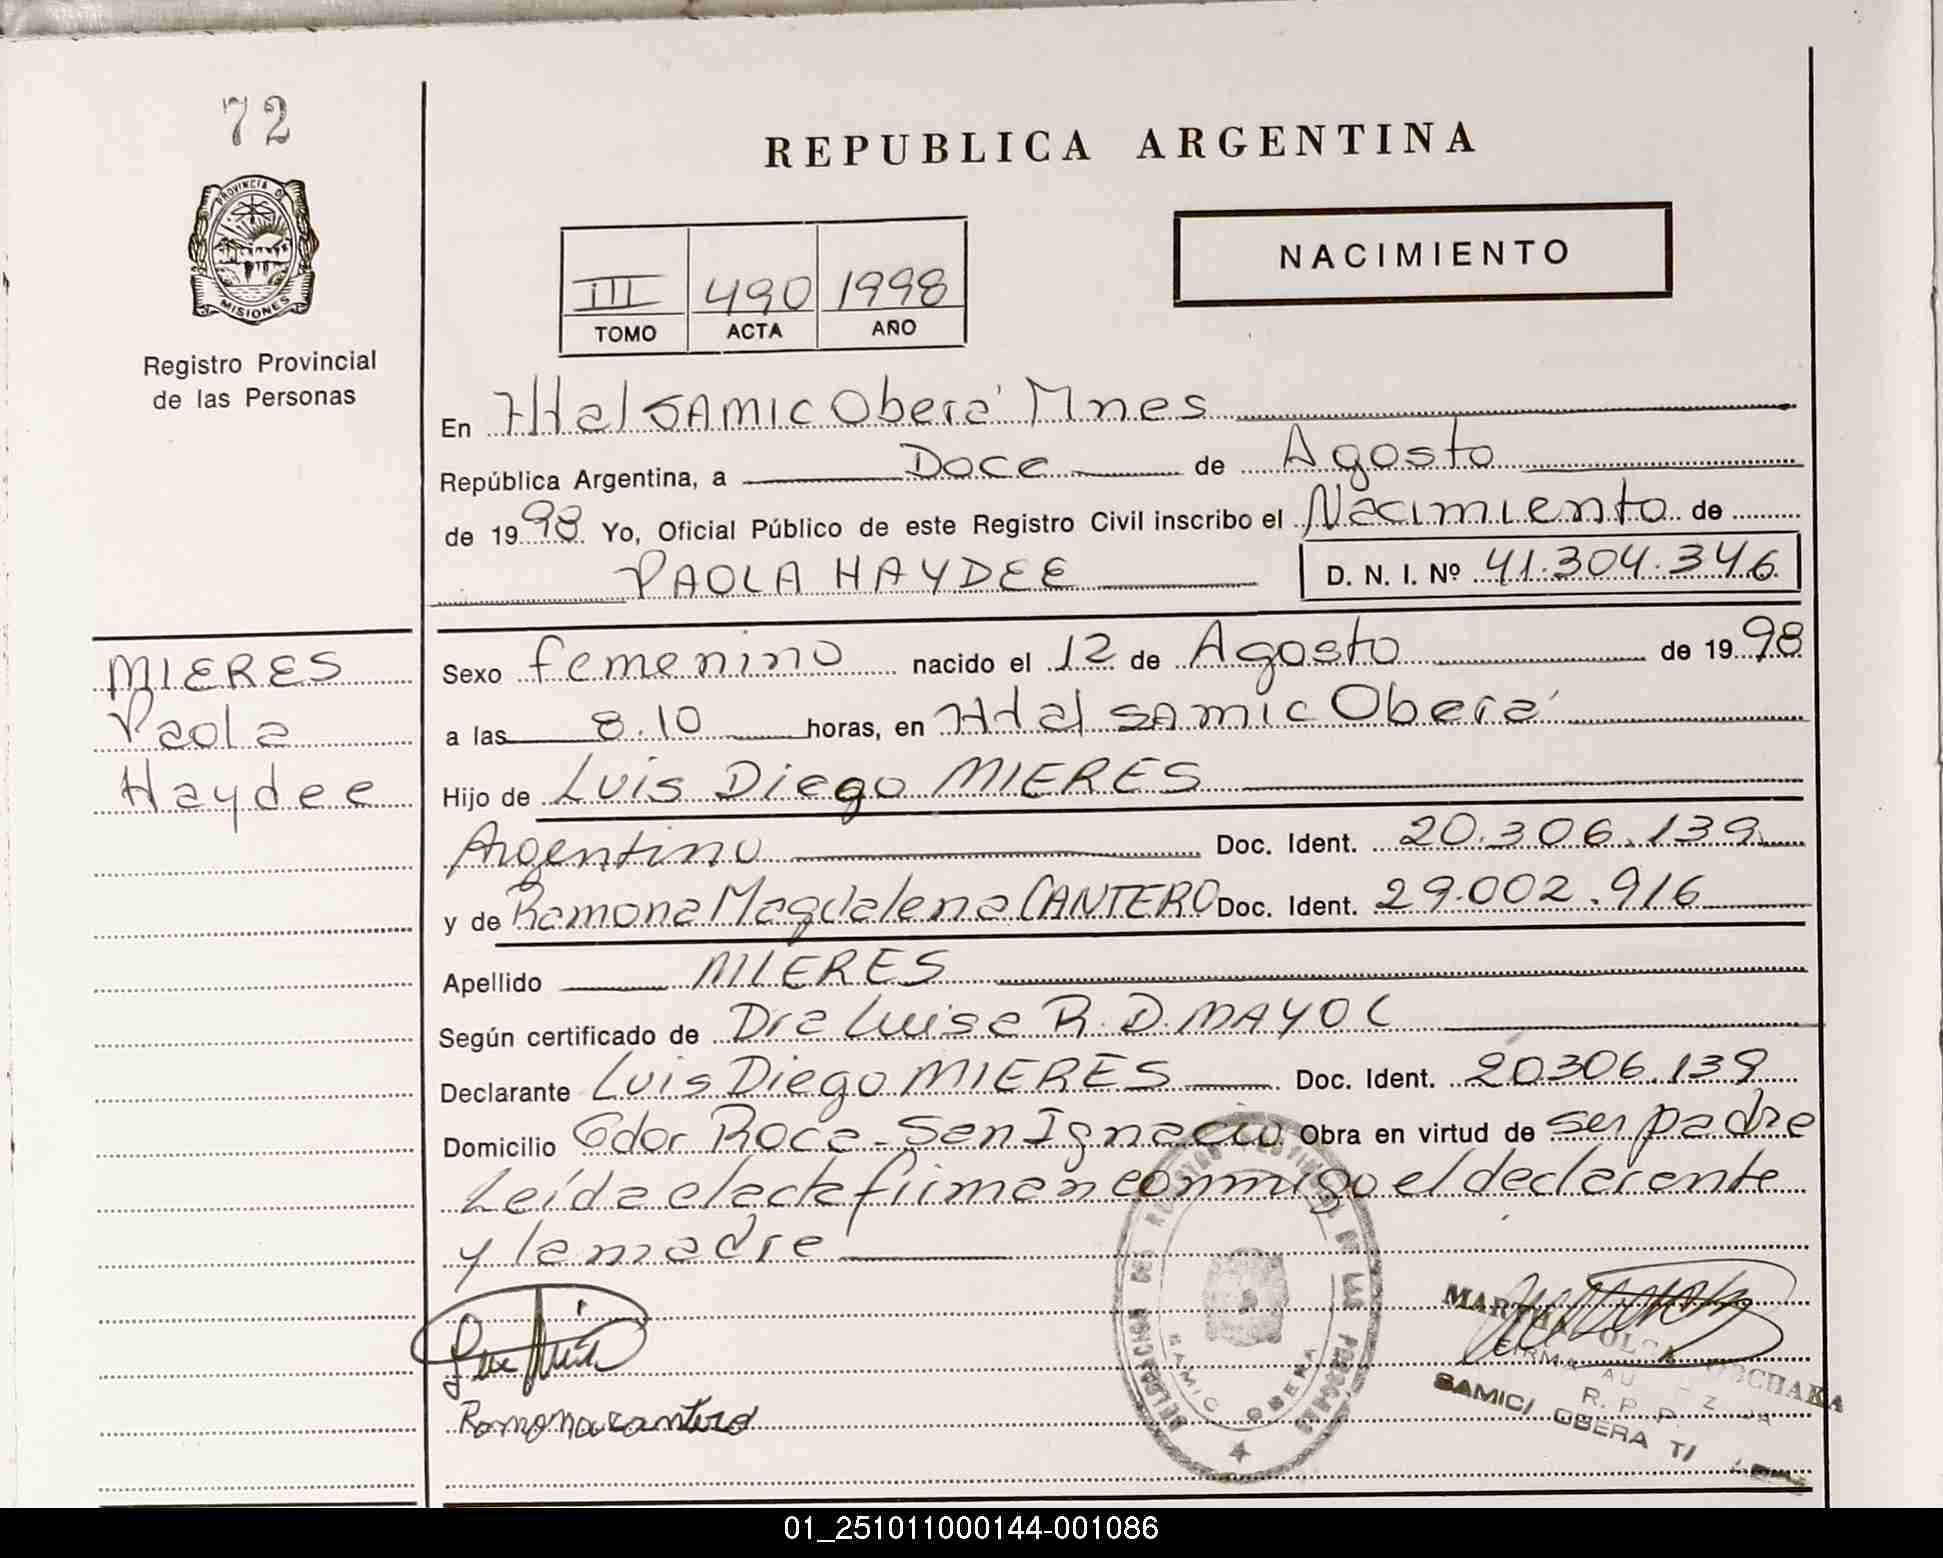 72
PROVINCIA DE
MISIONES
Registro Provincial
de las Personas
MIERES
Paola
Haydee
REPUBLICA ARGENTINA
III 490 1998
TOMO ACTA AÑO
NACIMIENTO
En Htal SAMIC Oberá Mnes
República Argentina, a Doce de Agosto
de 1998 Yo, Oficial Público de este Registro Civil inscribo el Nacimiento de
PAOLA HAYDEE D. N. I. Nº 41.304.346
Sexo femenino nacido el 12 de Agosto de 1998
a las 8.10 horas, en Htal SAMIC Oberá
Hijo de Luis Diego MIERES
Argentino Doc. Ident. 20.306.139
y de Ramona Magdalena CANTERO Doc. Ident. 29.002.916
Apellido MIERES
Según certificado de Dra Luisa R. D. MAYOL
Declarante Luis Diego MIERES Doc. Ident. 20306.139
Domicilio Gdor Roca - San Ignacio Obra en virtud de ser padre
Leída el acta firman conmigo el declarante
y la madre
DELEGACION DEL REGISTRO PROVINCIAL DE LAS PERSONAS
SAMIC OBERA
Ramona cantero
MARTHA OLGA
FIRMA AU
R. P. P.
SAMIC/ OBERA
01_251011000144-001086